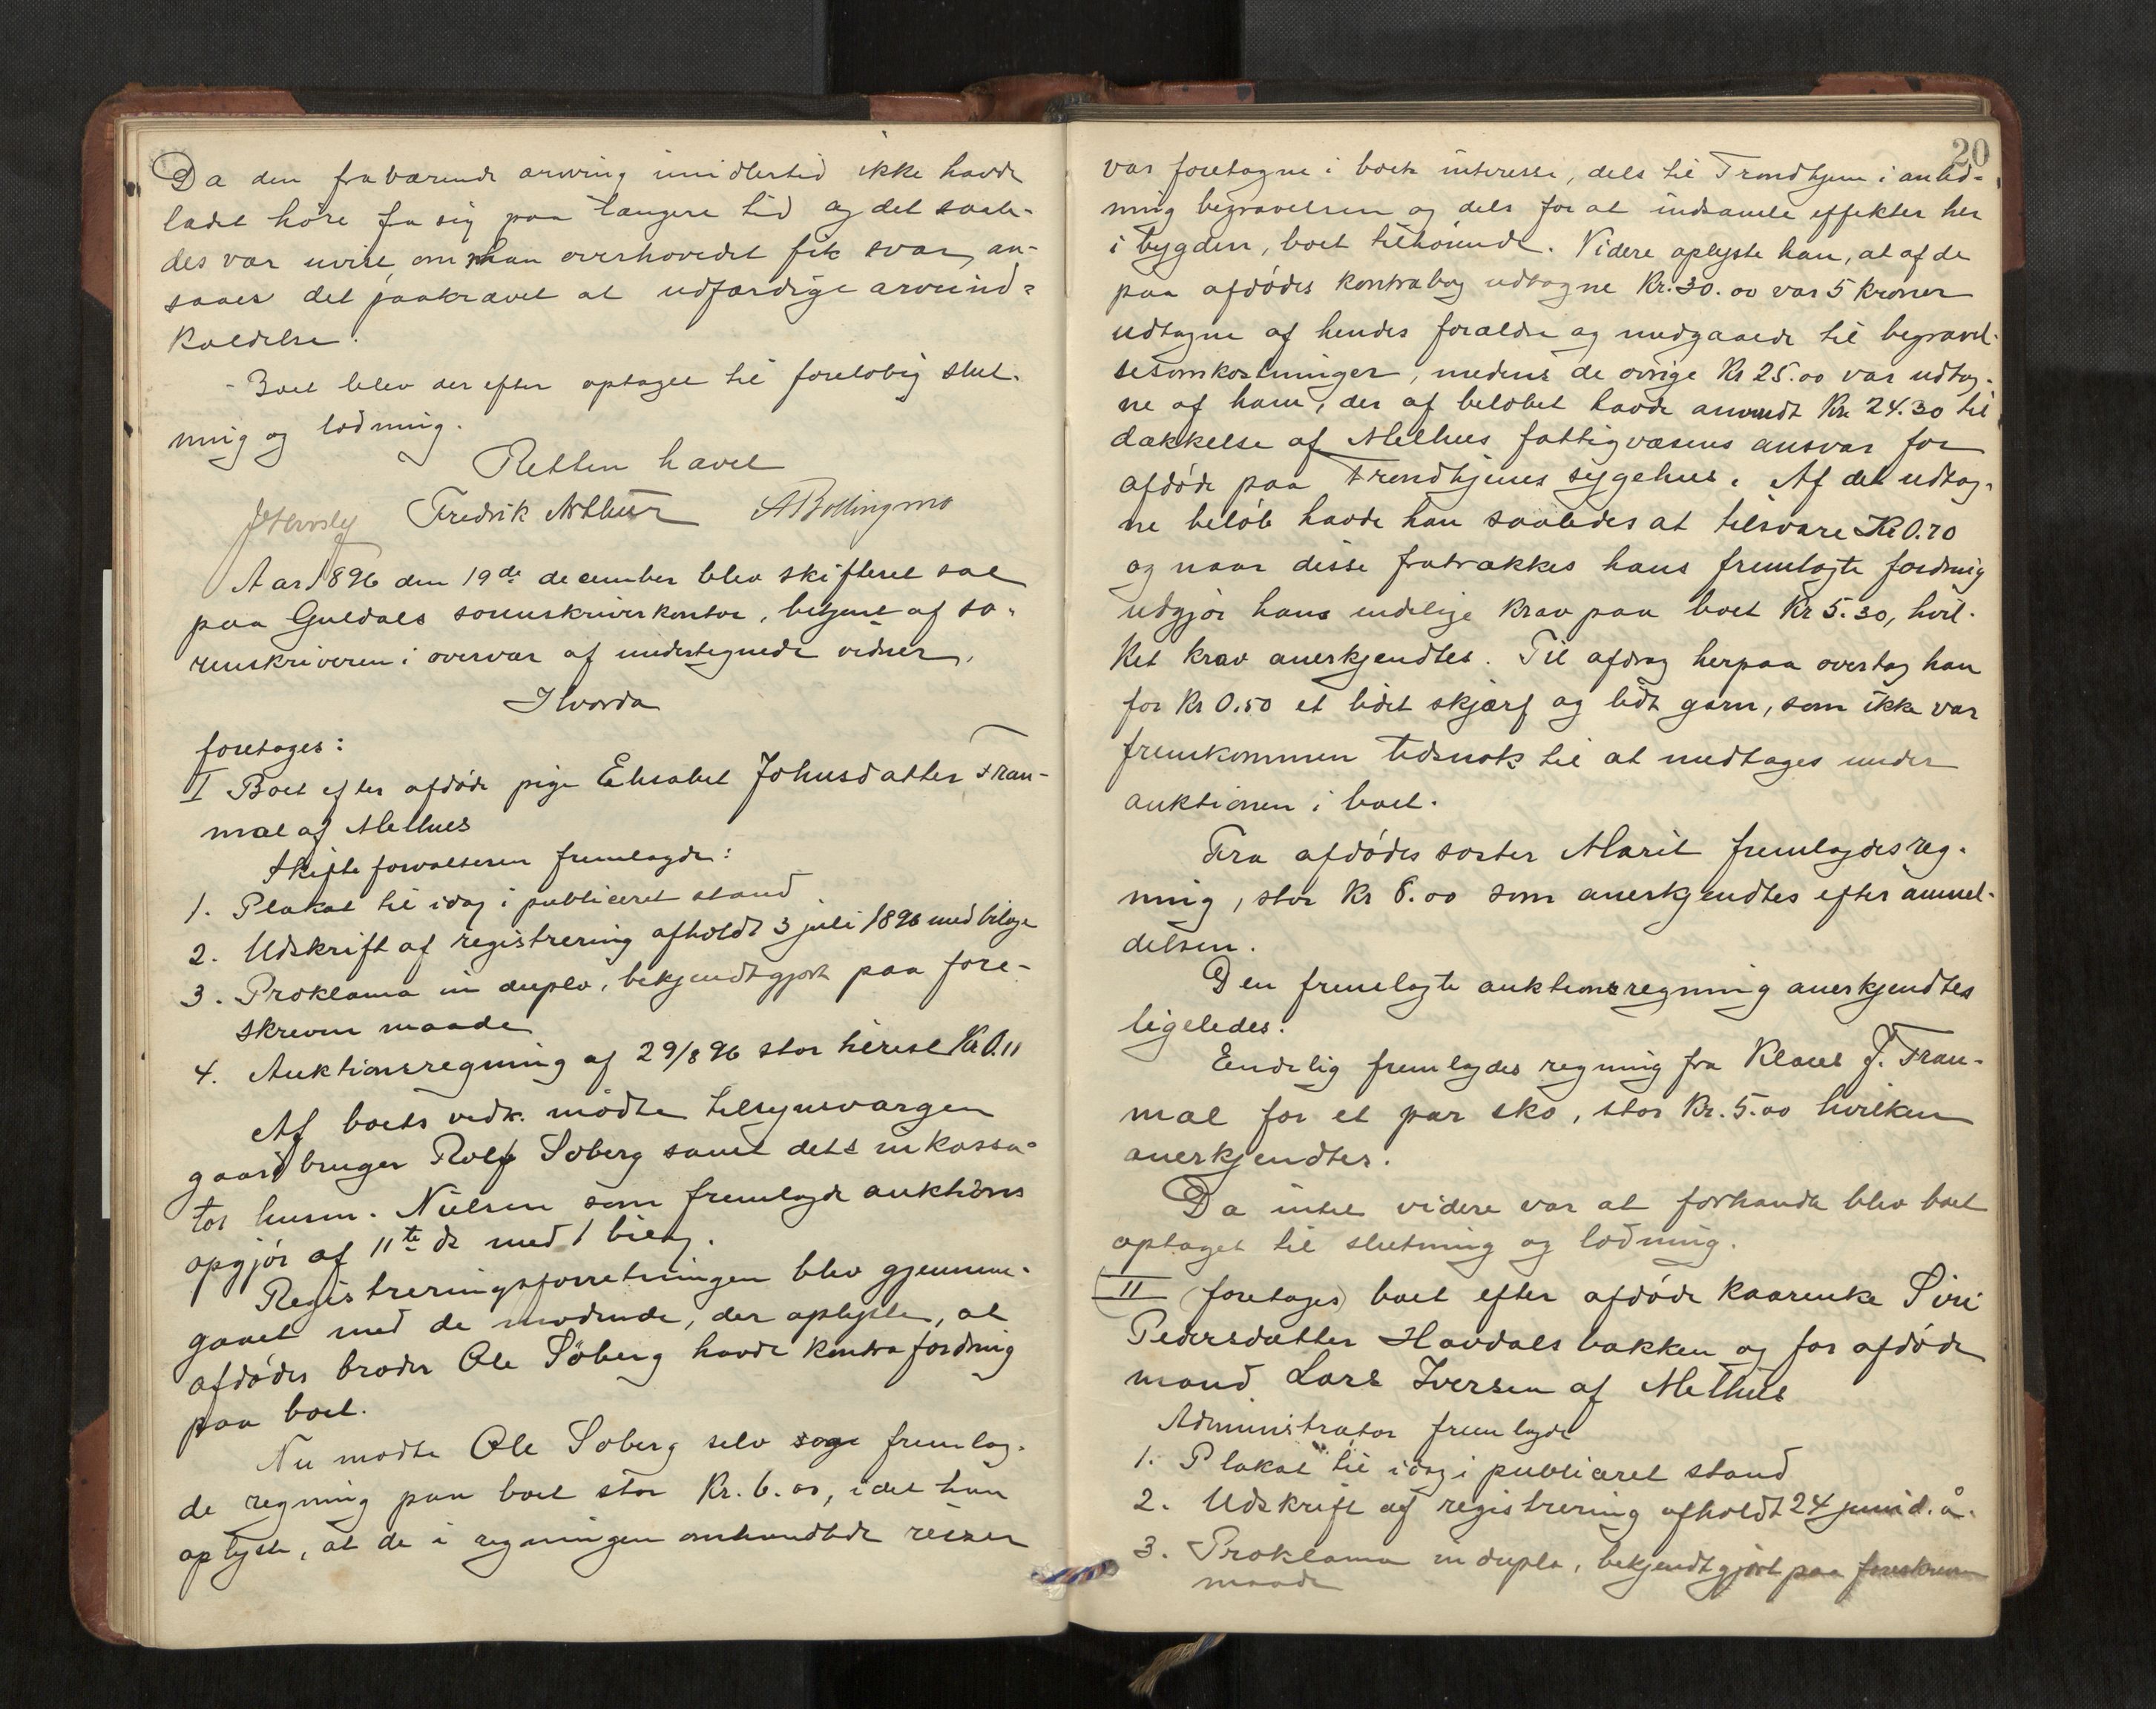 Da den fraværende arving imidlertid ikke havde
ladet höre fra sig paa længere tid og det saale-
des var uvist, om man overhovedet fik svar, an-
saaes det paakrævet at udfærdige arveind-
kaldelse.
- Boet blev derefter optaget til foreløbig slut-
ning og lodning.
Retten hævet
Fredrik Arthur A Bollingmo
Aar 1896 den 19de december blev skifteret sat
paa Guldals sorenskriverkontor, betjent af so-
renskriveren i overvær af undertegnede vidner.
Hvorda
foretages:
I Boet efter afdöde pige Elisabet Johnsdatter Tran-
mæl af Melhus
Skifteforvalteren fremlagde:
1. Plakat til idag i publiceret stand
2. Udskrift af registrering afholdt 3 juli 1896 med bilage
3. Proklama in duplo, bekjendtgjort paa fore-
skreven maade
4. Auktionsregning af 29/8 96 stor hidrest Kr 0.11
Af boets vedk. mödte tilsynsværgen
gaardbruger Rolf Söberg samt dets inkassa-
tor husm. Nielsen som fremlagde auktions
opgjör af 11te ds med 1 bilag.
Registreringsforretningen blev gjennem-
gaaet med de mödende, der oplyste, at
afdödes broder Ole Söberg havde kontrafordring
paa boet.
Nu mödte Ole Söberg selv og fremlag-
de regning paa boet stor Kr. 6.00, idet han
oplyste, at de i regningen omhandlede reiser
20
var foretagne i boets interesse, dels til Trondhjem i anled-
ning begravelsen og dels for at indsamle effekter her
i bygden, boet tilhörende. Videre oplyste han, at af de
paa afdödes kontrabog udtagne Kr. 30.00 var 5 kroner
udtagne af hendes forældre og medgaaede til begravel-
sesomkostninger, medens de övrige Kr 25.00 var udtag-
ne af ham, der af belöbet havde anvendt Kr. 24.30 til
dækkelse af Melhus fattigvæsens ansvar for
afdöde paa Trondhjems sygehus. Af det udtag-
ne belöb havde han saaledes at tilsvare Kr 0.70
og naar disse fratrækkes hans fremlagte fordring
udgjör hans endelige krav paa boet Kr 5.30, hvil-
ket krav anerkjendtes. Til afdrag herpaa overtog han
for Kr 0.50 et lidet skjærf og lidt garn, som ikke var
fremkommen tidsnok til at medtages under
auktionen i boet.
Fra afdödes söster Marit fremlagdes reg-
ning, stor Kr 6.00 som anerkjendtes efter anmel-
delsen.
Den fremlagte auktionsregning anerkjendtes
ligeledes.
Endelig fremlagdes regning fra Klaus J. Tran-
mæl for et par sko, stor Kr. 5.00 hvilken
anerkjendtes.
Da intet videre var at forhandle blev boet
optaget til slutning og lodning.
II (foretages) boet efter afdöde kaarenke Siri
Pedersdatter Havdalsbakken og för afdöde
mand Lars Iversen af Melhus
Administrator fremlagde
1. Plakat til idag i publiceret stand
2. Udskrift af registrering afholdt 24 juni d. å.
3. Proklama in duplo, bekjendtgjort paa foreskreven
maade